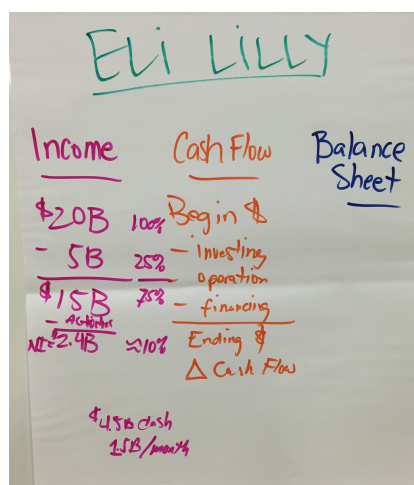 ELi LiLLY
Income
$20B 100%
- 5B 25%
$15B 75%
-
NI= $2.4B ≈10%
$4.5B Cash
1.5B/month
Cash Flow
Begin $
- investing
operation
- financing
Ending $
Δ Cash Flow
Balance
Sheet